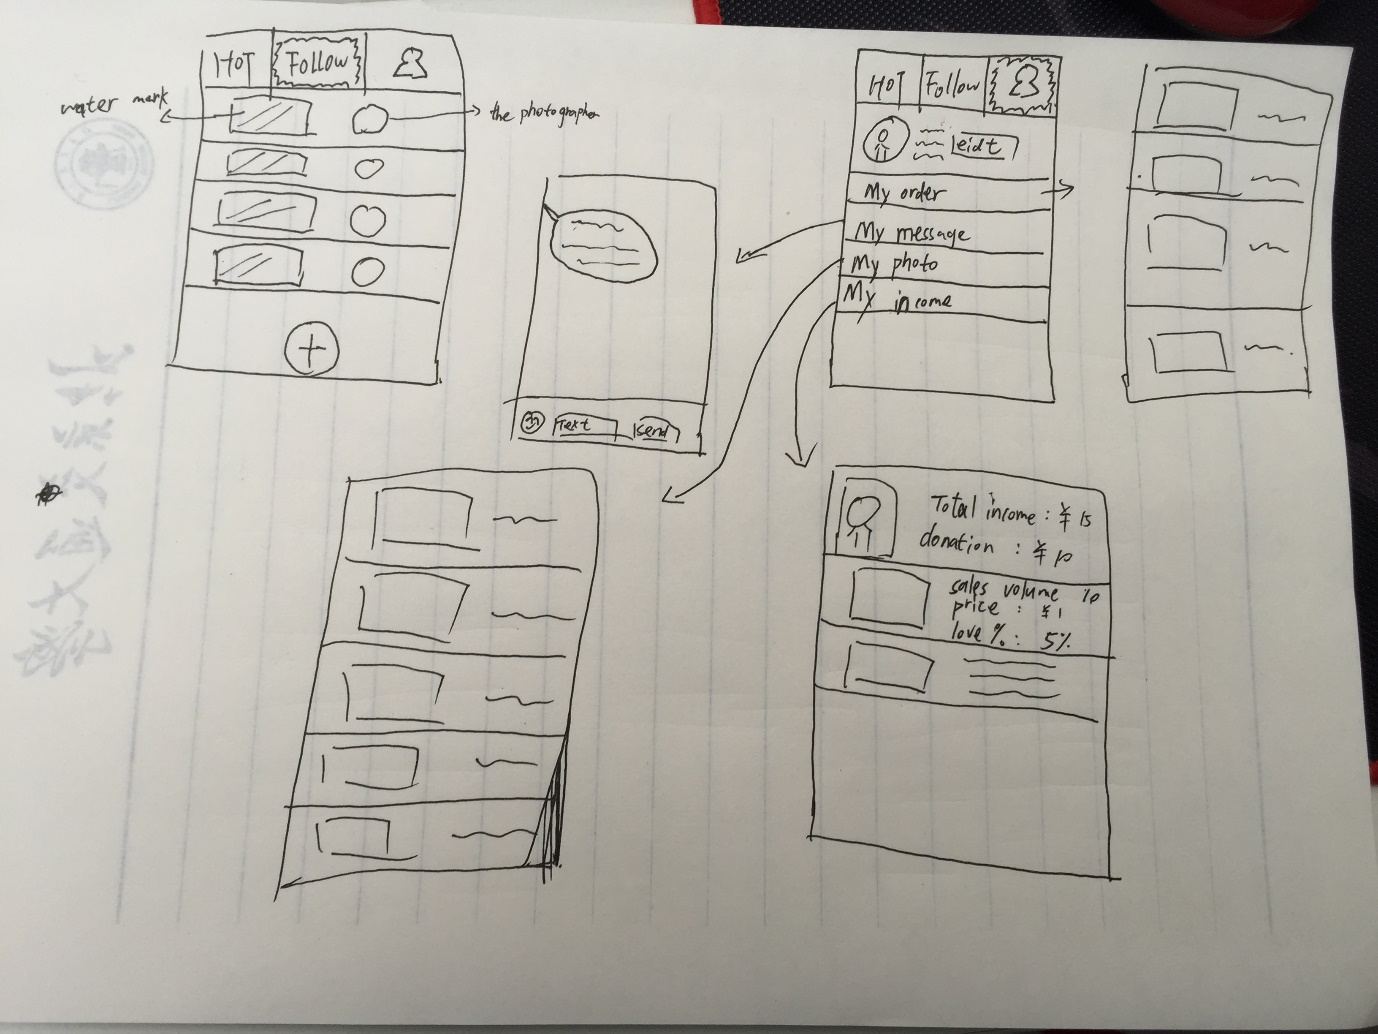 HOT Follow
water mark
the photographer
Text send
HOT Follow
eidt
My order
My message
My photo
My income
Total income : ¥ 15
donation : ¥ 10
sales volume 10
price : ¥1
love % : 5%